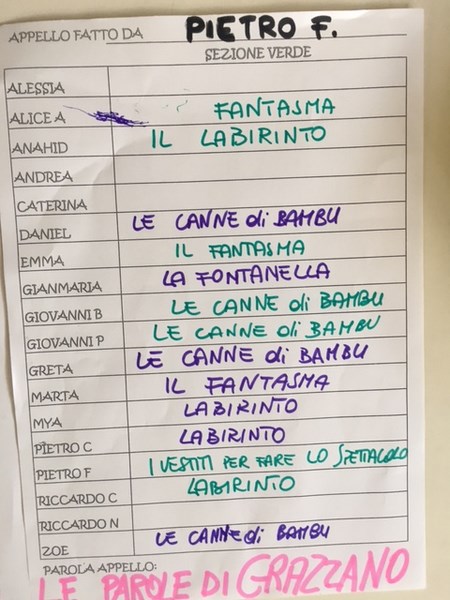 APPELLO FATTO DA PIETRO F.
SEZIONE VERDE
ALESSIA
ALICE A FANTASMA
ANAHID IL LABIRINTO
ANDREA
CATERINA
DANIEL LE CANNE di BAMBU
EMMA IL FANTASMA
GIANMARIA LA FONTANELLA
GIOVANNI B LE CANNE di BAMBU
GIOVANNI P LE CANNE di BAMBU
GRETA LE CANNE di BAMBU
MARTA IL FANTASMA
MYA LABIRINTO
PIETRO C LABIRINTO
PIETRO F I VESTITI PER FARE LO SPETTACOLO
RICCARDO C LABIRINTO
RICCARDO N
ZOE LE CANNE di BAMBU
PAROLA APPELLO:
LE PAROLE DI GRAZZANO